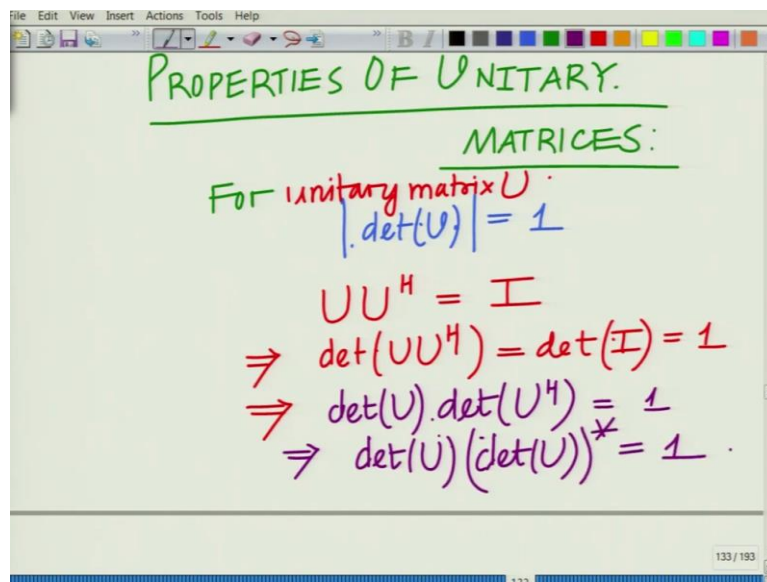 File Edit View Insert Actions Tools Help
B I
PROPERTIES OF UNITARY.
MATRICES:
For unitary matrix U.
|det(U)| = 1
UU^H = I
⇒ det(UU^H) = det(I) = 1
⇒ det(U).det(U^H) = 1
⇒ det(U)(det(U))^* = 1.
133 / 193